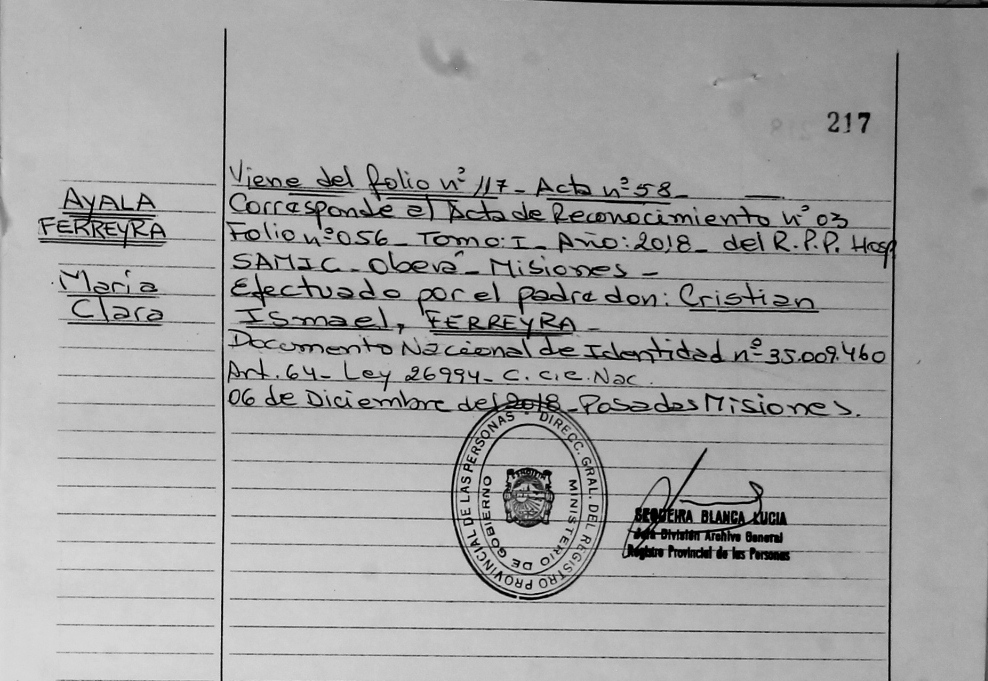 217
AYALA
FERREYRA
María
Clara
Viene del folio nº 117 - Acta nº 58 -
Corresponde al Acta de Reconocimiento nº 03
Folio nº 056 - Tomo: I - Año: 2018 - del R.P.P. Hosp
SAMIC - Oberá - Misiones -
Efectuado por el padre don: Cristian
Ismael, FERREYRA -
Documento Nacional de Identidad nº 35.009.460
Art. 64 - Ley 26994 - C. C. e. Nac.
06 de Diciembre del 2018 - Posadas Misiones.
DIRECC. GRAL. DEL REGISTRO PROVINCIAL DE LAS PERSONAS
MINISTERIO DE GOBIERNO
SEQUEIRA BLANCA LUCIA
Jefa División Archivo General
Registro Provincial de las Personas